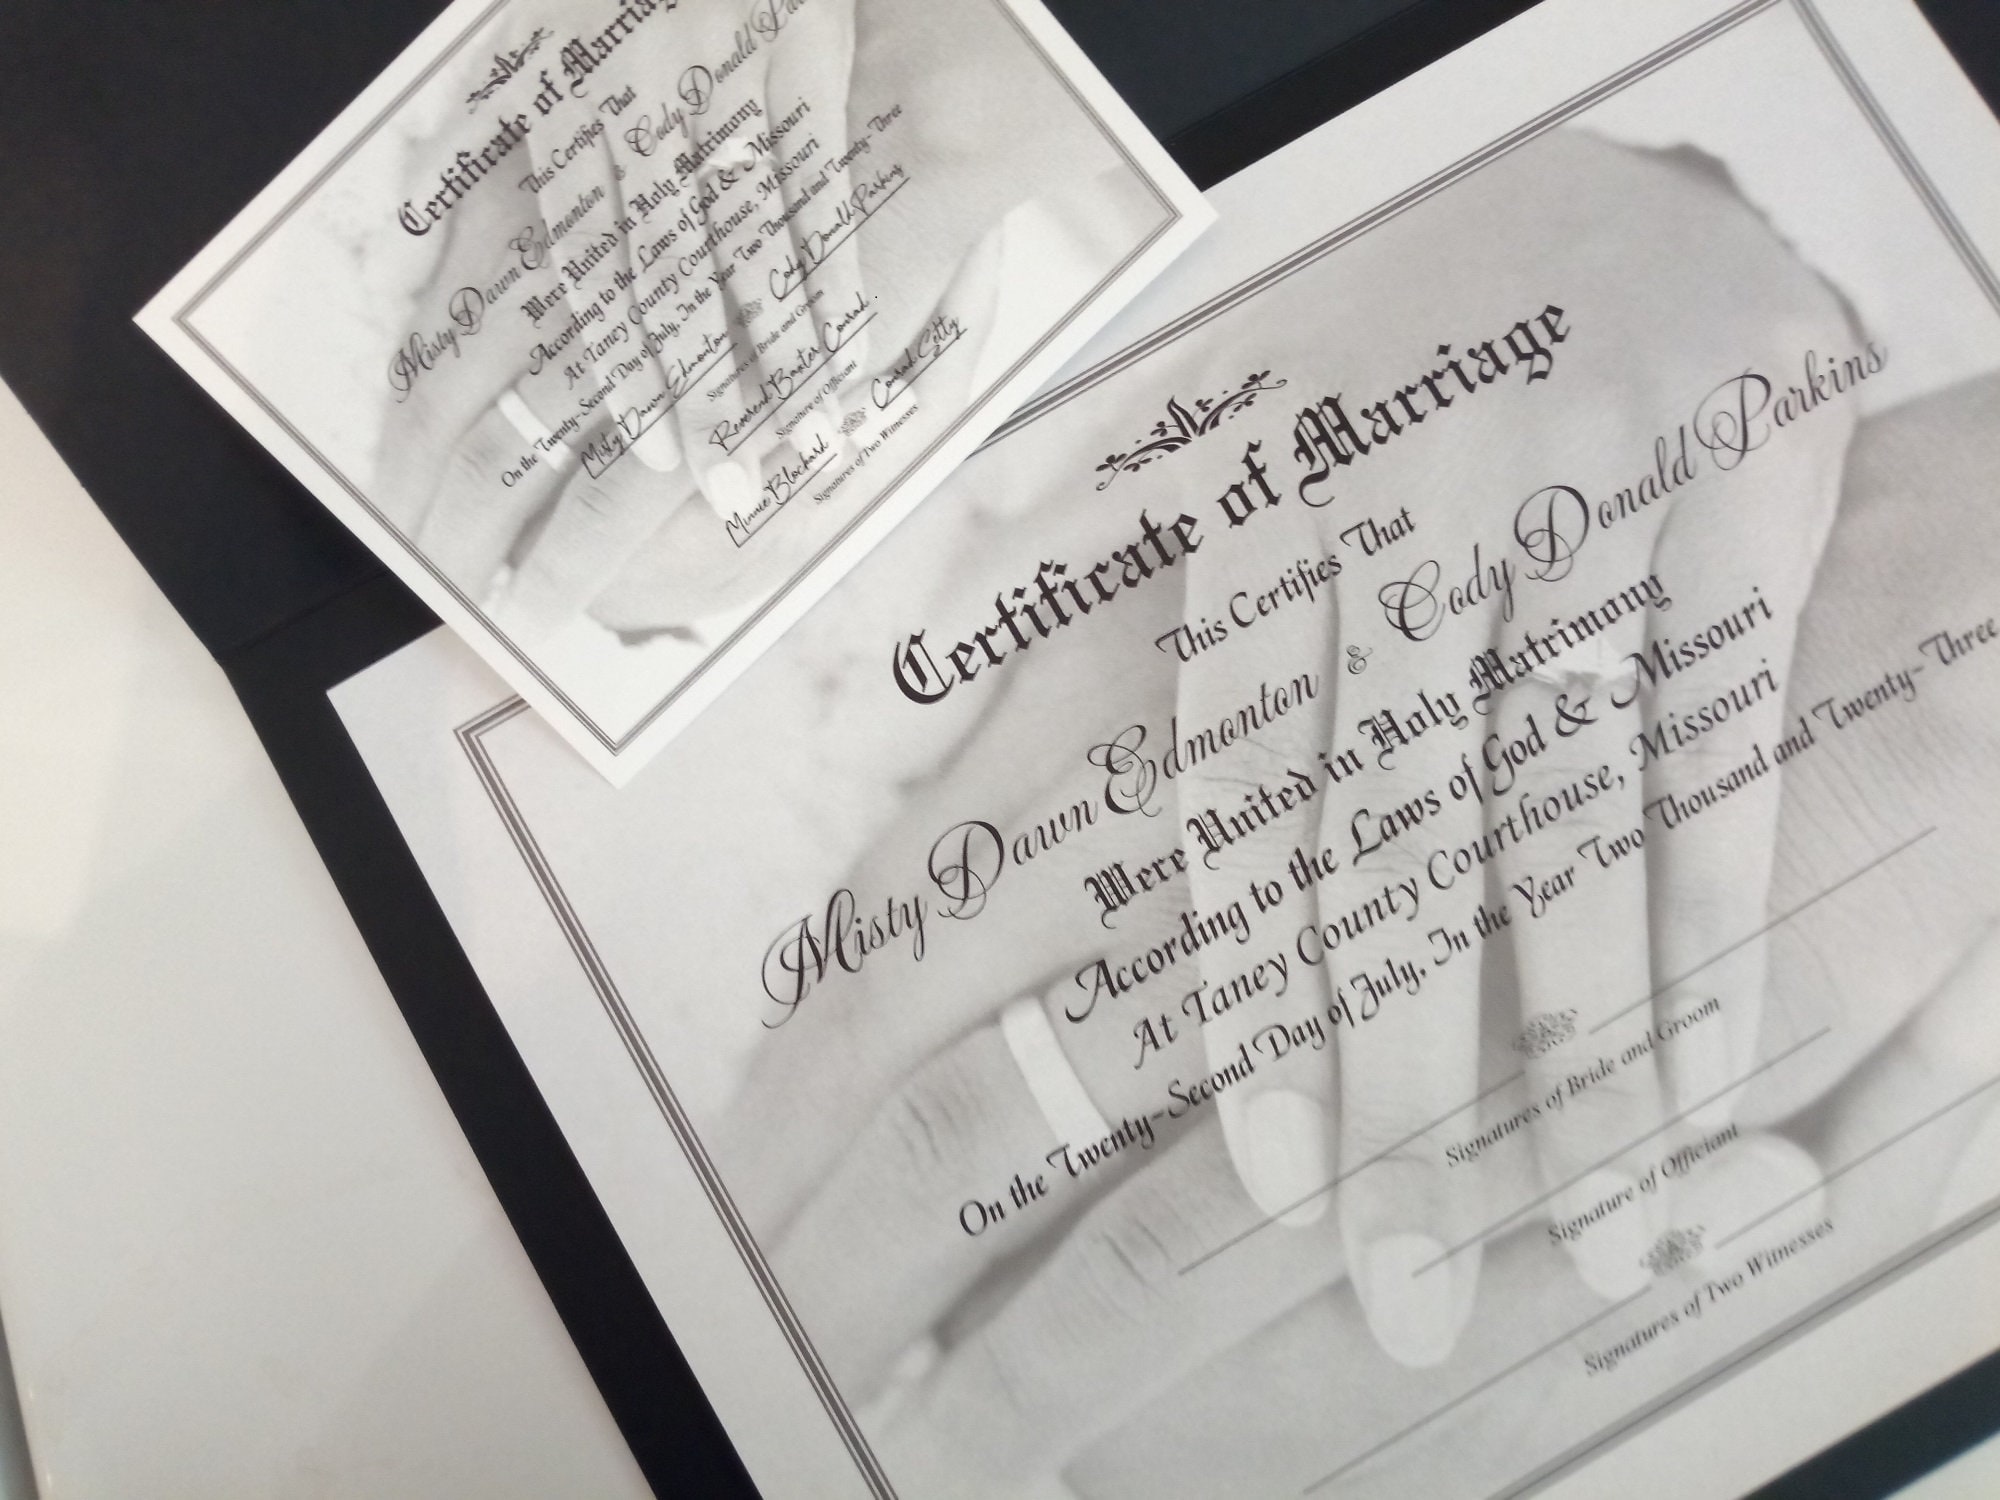 Certificate of Marriage
This Certifies That
Misty Dawn Edmonton & Cody Donald
Were United in Holy Matrimony
According to the Laws of God & Missouri
At Taney County Courthouse, Missouri
On the Twenty-Second Day of July, In the Year Two Thousand and Twenty-Three
Misty Dawn Edmonton Cody Donald Parkins
Signatures of Bride and Groom
Reverend Baxter Conrad
Signature of Officiant
Minnie Blochard Conrad Getty
Signatures of Two Witnesses
Certificate of Marriage
This Certifies That
Misty Dawn Edmonton & Cody Donald Parkins
Were United in Holy Matrimony
According to the Laws of God & Missouri
At Taney County Courthouse, Missouri
On the Twenty-Second Day of July, In the Year Two Thousand and Twenty-Three
Signatures of Bride and Groom
Signature of Officiant
Signatures of Two Witnesses